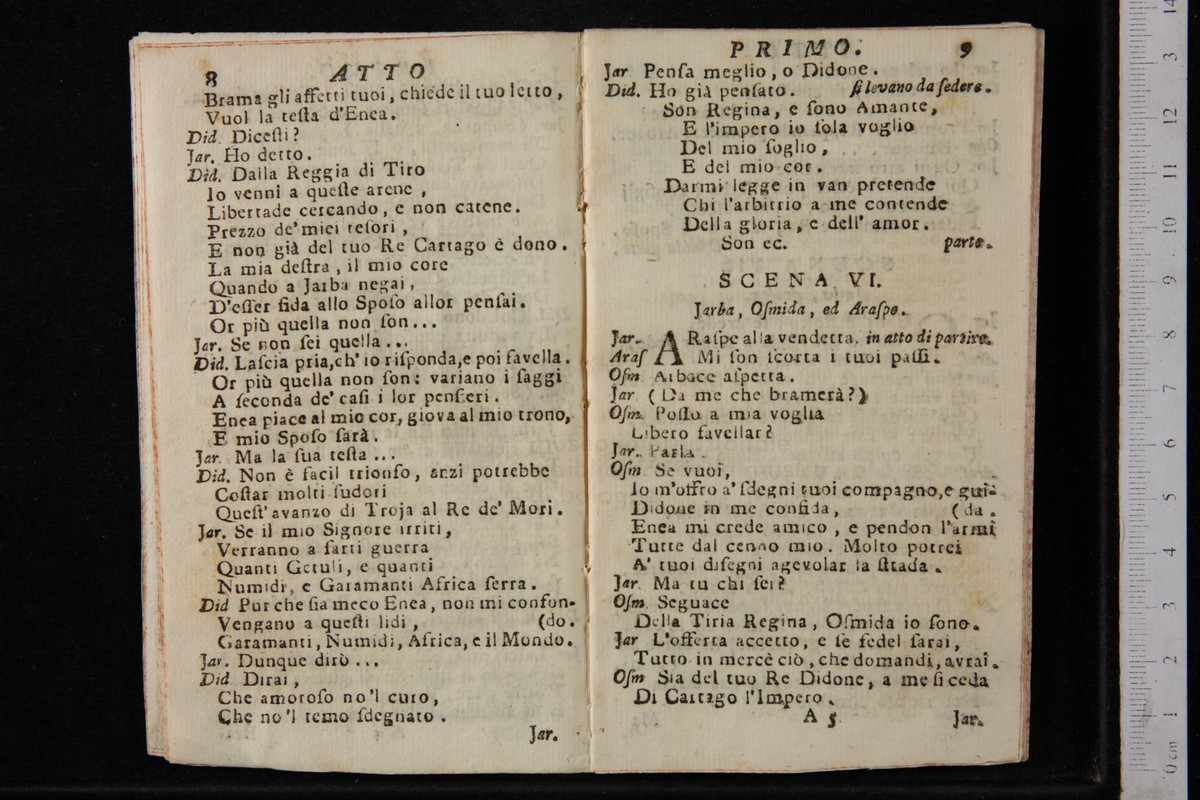 8 ATTO
Brama gli affetti tuoi, chiede il tuo letto,
Vuol la teſta d'Enea.
Did. Diceſti?
Jar. Ho detto.
Did. Dalla Reggia di Tiro
Io venni a queſte arene,
Libertade cercando, e non catene.
Prezzo de' miei teſori,
E non già del tuo Re Cartago è dono.
La mia deſtra, il mio core
Quando a Jarba negai,
D'eſſer fida allo Spoſo allor penſai.
Or più quella non ſon...
Jar. Se non ſei quella...
Did. Laſcia pria, ch' io riſponda, e poi favella.
Or più quella non ſon: variano i ſaggi
A ſeconda de' caſi i lor penſieri.
Enea piace al mio cor, giova al mio trono,
E mio Spoſo ſarà.
Jar. Ma la ſua teſta...
Did. Non è facil trionfo, anzi potrebbe
Coſtar molti ſudori
Queſt' avanzo di Troja al Re de' Mori.
Jar. Se il mio Signore irriti,
Verranno a farti guerra
Quanti Getuli, e quanti
Numidi, e Garamanti Africa ſerra.
Did Pur che ſia meco Enea, non mi confon-
Vengano a queſti lidi, (do.
Garamanti, Numidi, Africa, e il Mondo.
Jar. Dunque dirò...
Did Dirai,
Che amoroſo no'l curo,
Che no'l temo ſdegnato.
Jar.
PRIMO. 9
Jar Penſa meglio, o Didone.
Did. Ho già penſato. ſi levano da ſedere.
Son Regina, e ſono Amante,
E l'impero io ſola voglio
Del mio ſoglio,
E del mio cor.
Darmi legge in van pretende
Chi l'arbitrio a me contende
Della gloria, e dell' amor.
Son ec. parte.
SCENA VI.
Jarba, Oſmida, ed Araſpe.
Jar. ARaſpe alla vendetta. in atto di partire.
Araſ Mi ſon ſcorta i tuoi paſſi.
Oſm Arbace aſpetta.
Jar (Da me che bramerà?)
Oſm. Poſſo a mia voglia
Libero favellar?
Jar. Parla.
Oſm Se vuoi,
Io m'offro a' ſdegni tuoi compagno, e gui-
Didone in me confida, (da.
Enea mi crede amico, e pendon l'armi
Tutte dal cenno mio. Molto potrei
A' tuoi diſegni agevolar la ſtrada.
Jar Ma tu chi ſei?
Oſm. Seguace
Della Tiria Regina, Oſmida io ſono.
Jar L'offerta accetto, e ſe fedel ſarai,
Tutto in mercè ciò, che domandi, avrai.
Oſm Sia del tuo Re Didone, a me ſi ceda
Di Cartago l'Impero.
A 5 Jar.
0 cm 1 2 3 4 5 6 7 8 9 10 11 12 13 14